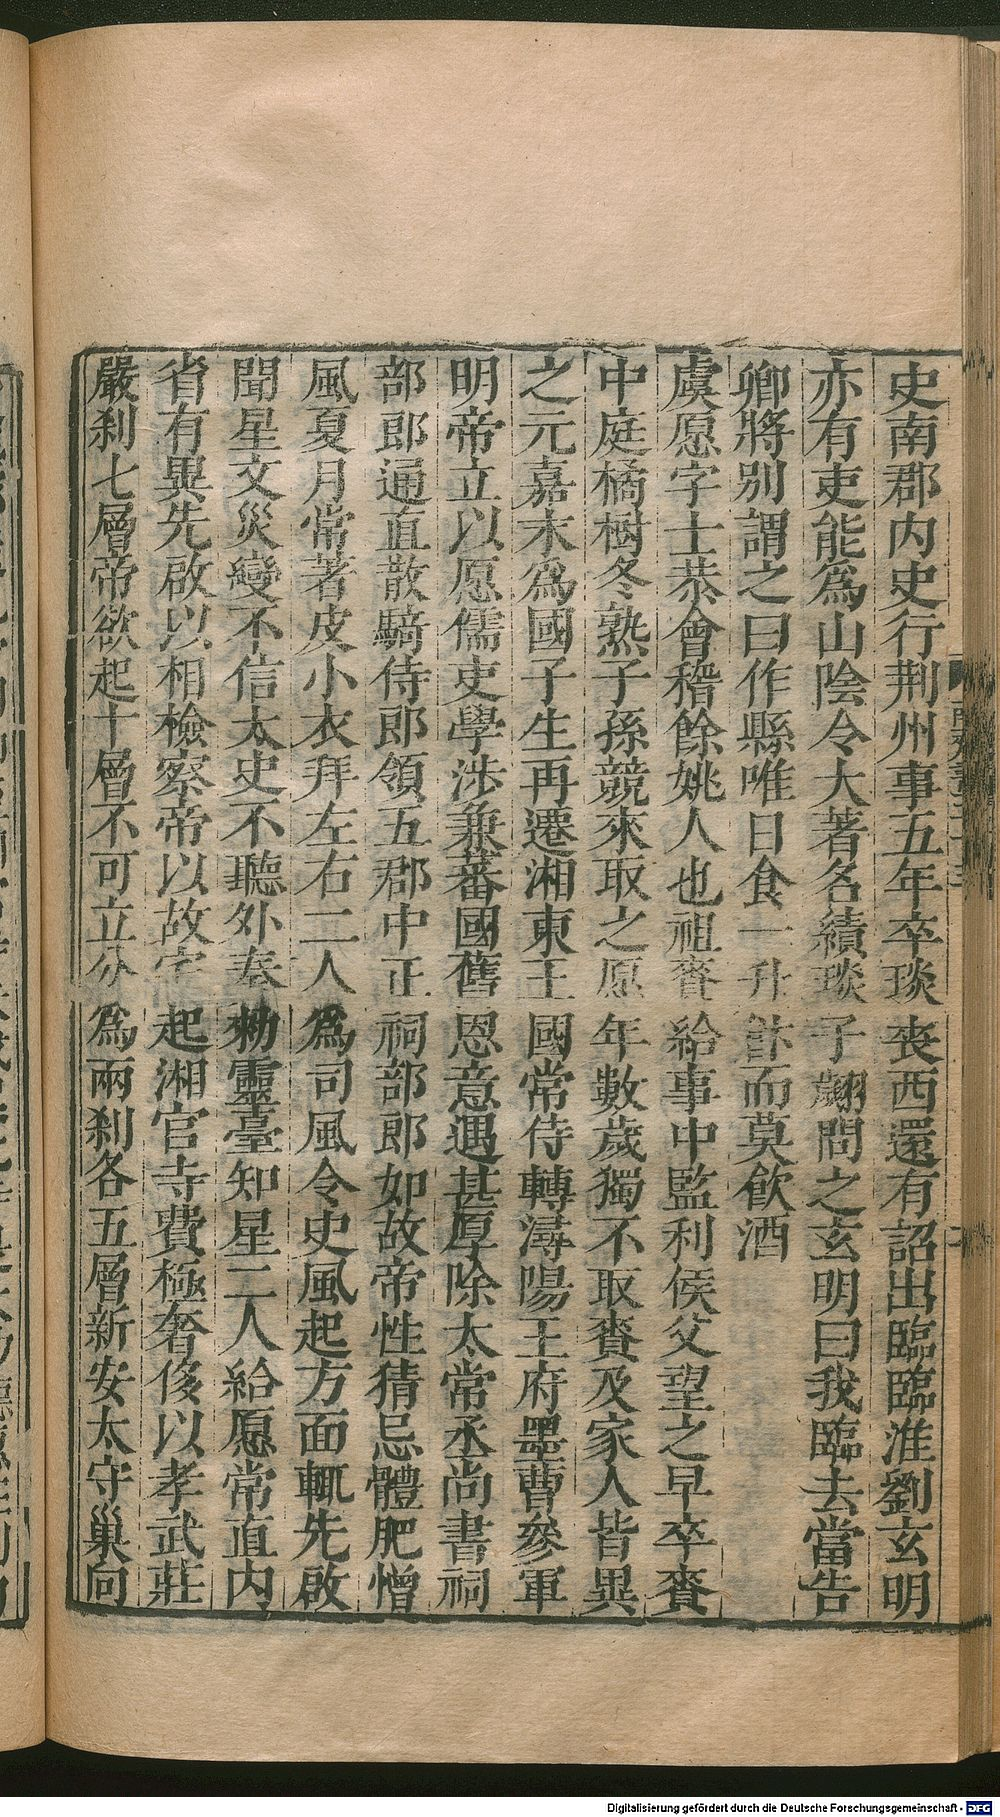 史南郡内史行荆州事五年卒琰喪西還有詔出臨臨淮劉玄明
亦有吏能爲山陰令大著名績琰子翽問之玄明曰我臨去當告
卿將別謂之曰作縣唯日食一升飰而莫飲酒
虞愿字士恭會稽餘姚人也祖賚給事中監利侯父望之早卒賚
中庭橘樹冬熟子孫競來取之愿年數歲獨不取賚及家人皆異
之元嘉末爲國子生再遷湘東王國常侍轉潯陽王府墨曹參軍
明帝立以愿儒吏學涉兼蕃國舊恩意遇甚厚除太常丞尚書祠
部郎通直散騎侍郎領五郡中正祠部郎如故帝性猜忌體肥憎
風夏月常著皮小衣拜左右二人爲司風令史風起方面輒先啟
聞星文災變不信太史不聽外奏勑靈臺知星二人給愿常直内
省有異先啟以相檢察帝以故宅起湘宮寺費極奢侈以孝武莊
嚴刹七層帝欲起十層不可立分爲兩刹各五層新安太守巢向
南齊書
Digitalisierung gefördert durch die Deutsche Forschungsgemeinschaft - DFG